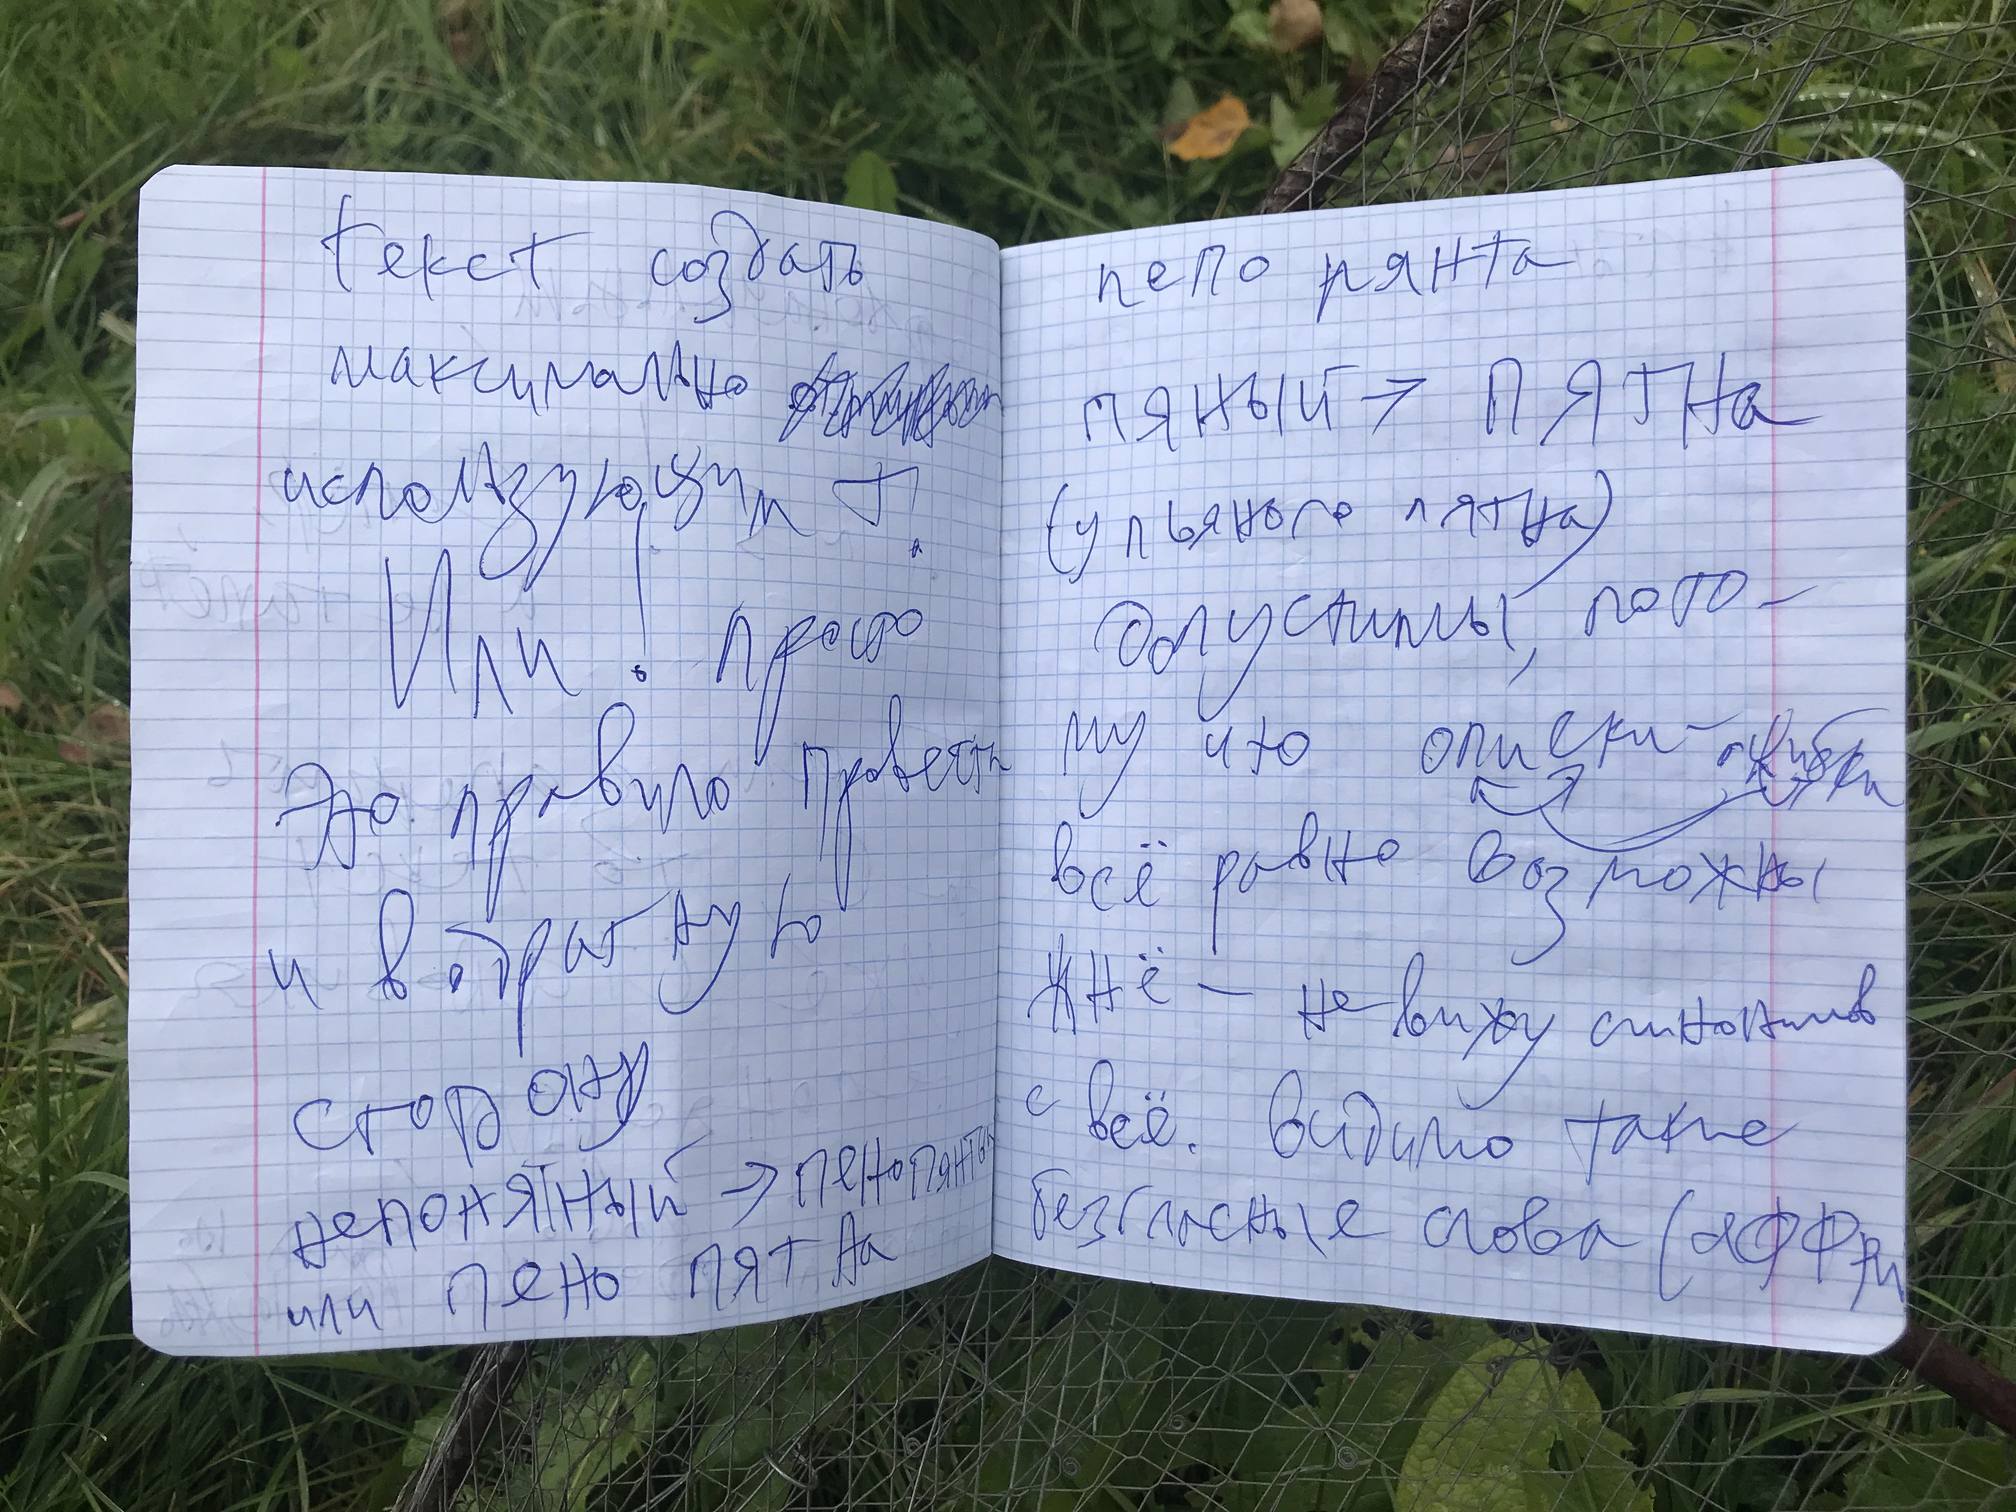 текст создать
максимально
использующим т!
Или! просто
Это правило провести
и в обратную
сторону
непонятный → пенопянты
или пено пятна
пепо рянта
пяный → ПЯТНа
(у пьяного пятна)
допустимы, пото-
му что описки-ошибки
всё равно возможны
ЖНё - не вижу синонимов
с всё. Видимо такие
безгласные слова (аффри